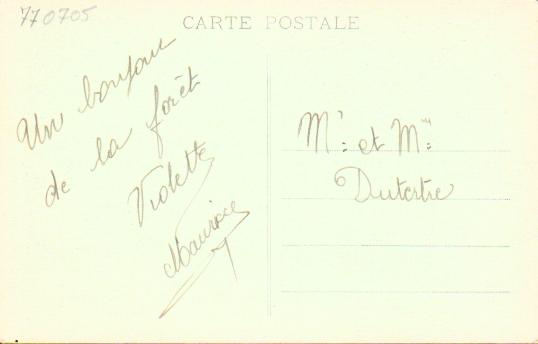 770705
CARTE POSTALE
Un bonjour
de la forêt
Violette
Maurice
Mr: et Mme:
Dutertre